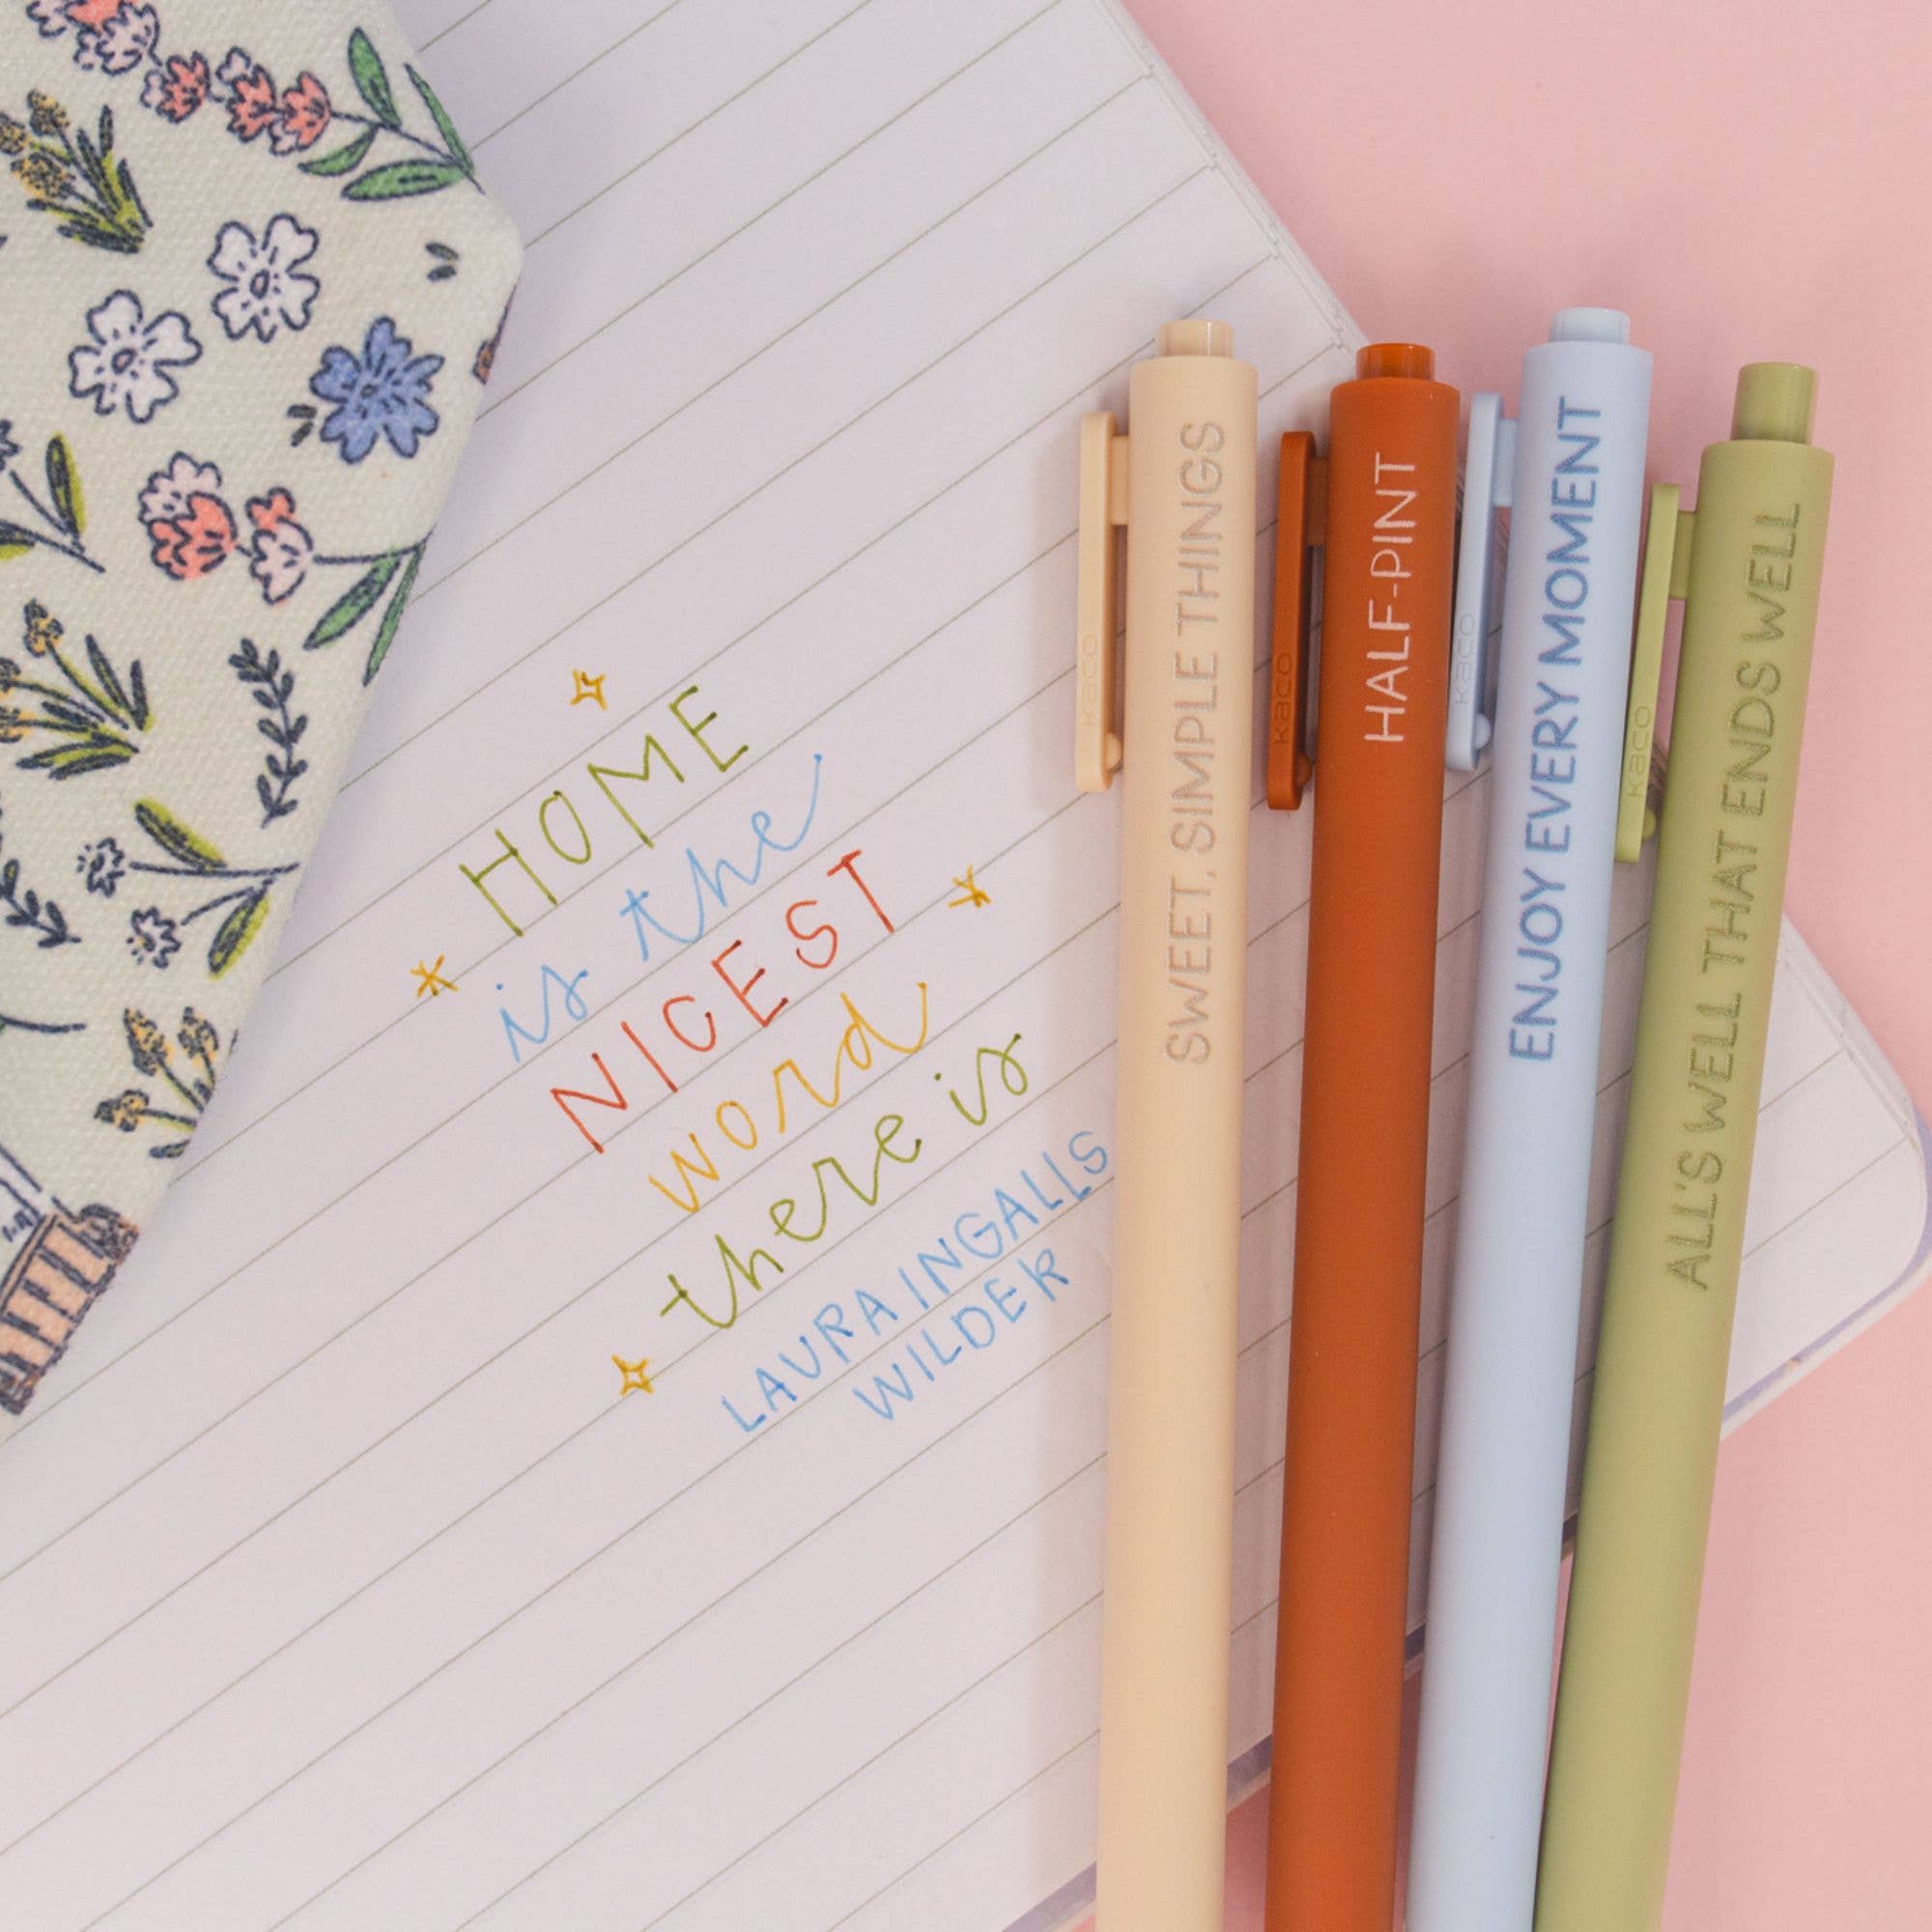 HOME
is the
NICEST
word
there is
LAURA INGALLS
WILDER
SWEET, SIMPLE THINGS
kaco
HALF-PINT
kaco
ENJOY EVERY MOMENT
kaco
ALL'S WELL THAT ENDS WELL
kaco